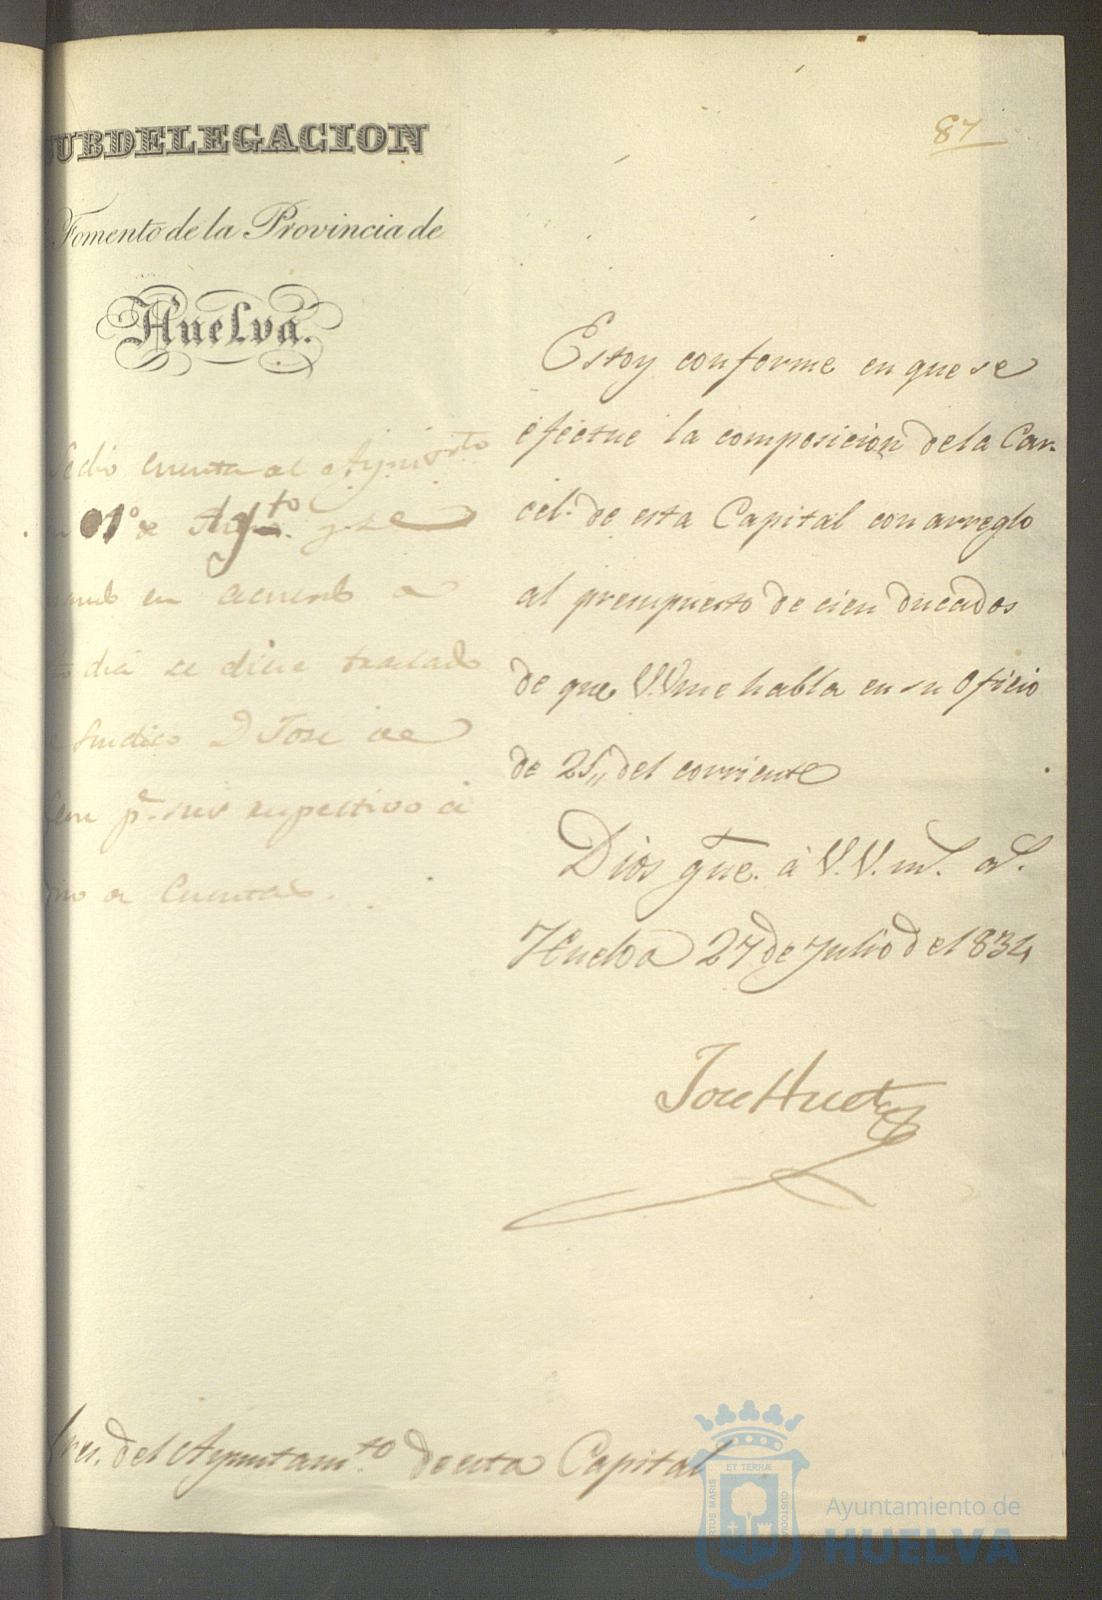 UBDELEGACION
Fomento de la Provincia de
Huelva.
87
Estoy conforme en que se
efectue la composicion de la Car-
cel. de esta Capital con arreglo
al presupuesto de cien ducados
de que V.Vme habla en su Oficio
de 25,, del corriente
Dios gue. à V.V. ms. as.
Huelva 27 de Julio de 1834
Jose Huet
Sedio cuenta al Ayunto
01º de Agto. y se
en acuerdo a
dia se diese traslado
Sindico D Jose de
pa. su respectivo
de Cuentas.
res. del Ayuntamto. de esta Capital
ET TERRÆ
PORTUS MARIS
CUSTODIA
Ayuntamiento de
HUELVA